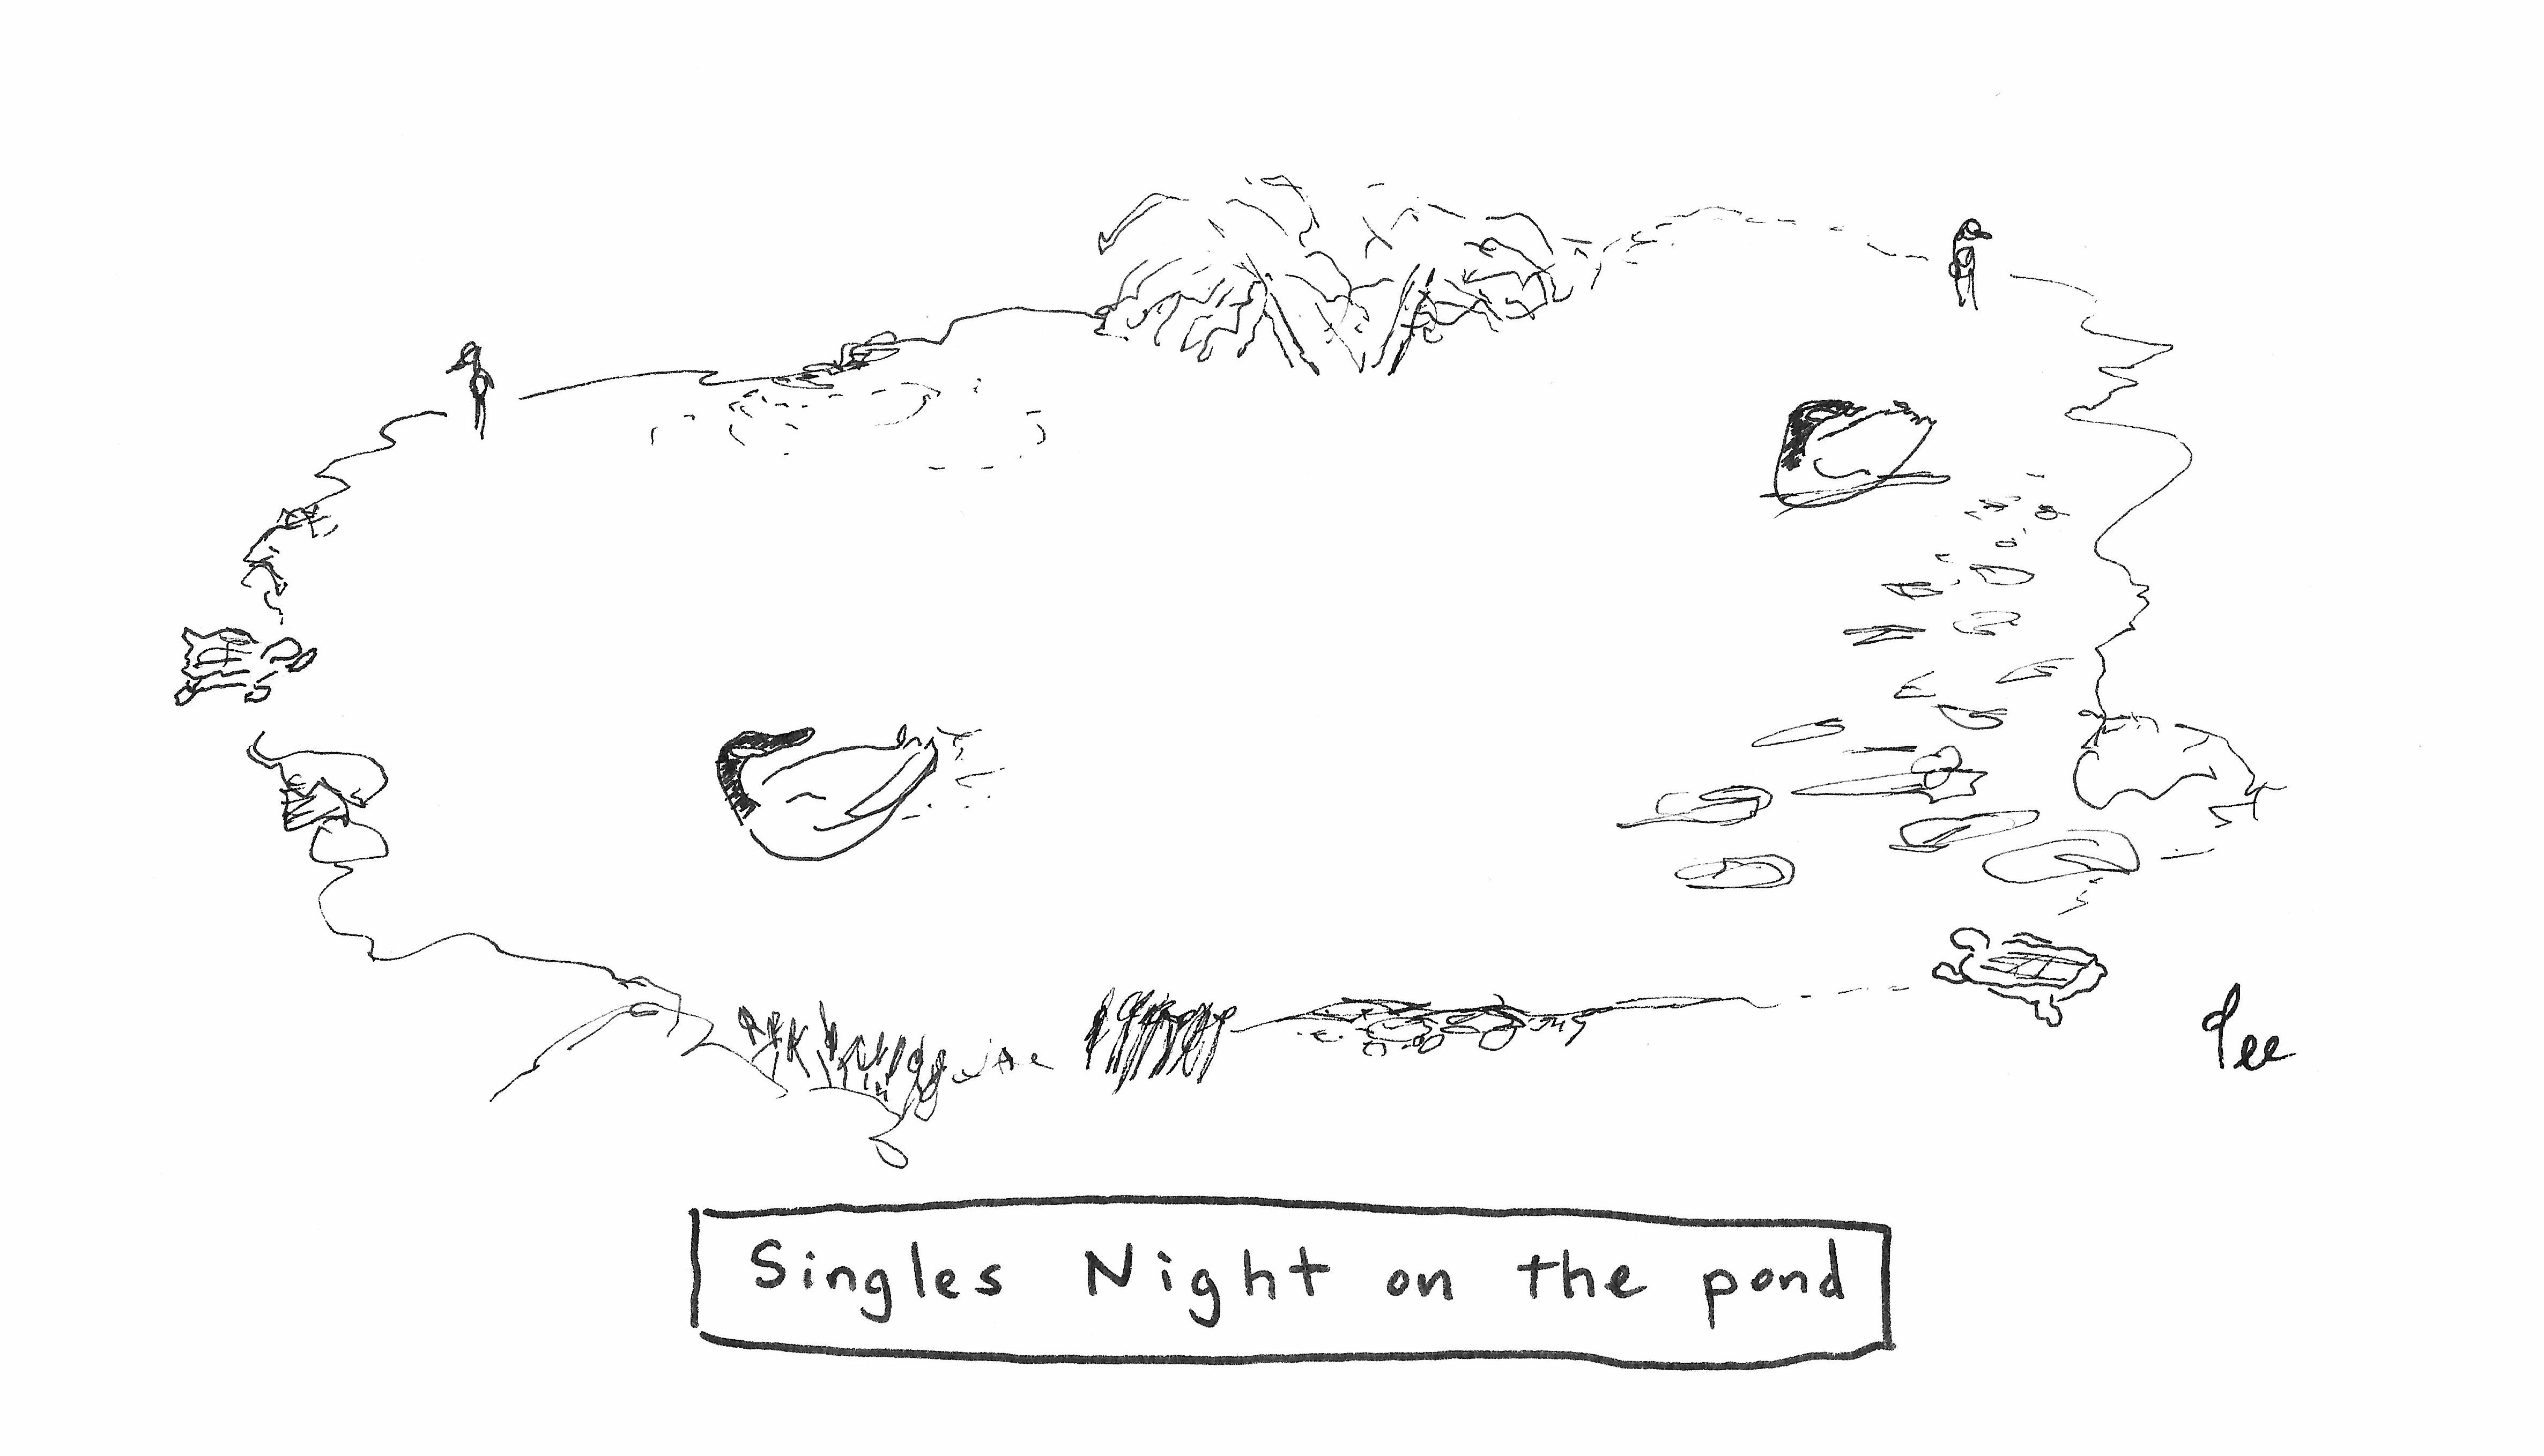 Singles Night on the pond